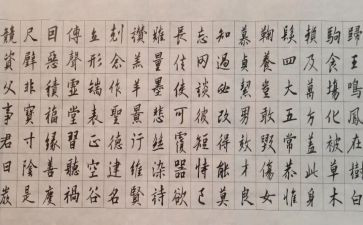 歸王鳴鳳在樹白
駒食場化被草木
賴及萬方蓋此身
髮四大五常恭惟
鞠養豈敢毀傷女
慕貞絜男效才良
知過必改得能莫
忘罔談彼短恃己
長信使可覆器欲
難量墨悲絲染詩
讚羔羊景行維賢
剋念作聖德建名
立形端表正空谷
傳聲虛堂習聽禍
因惡積福緣善慶
尺璧非寶寸陰是
競資父事君曰嚴